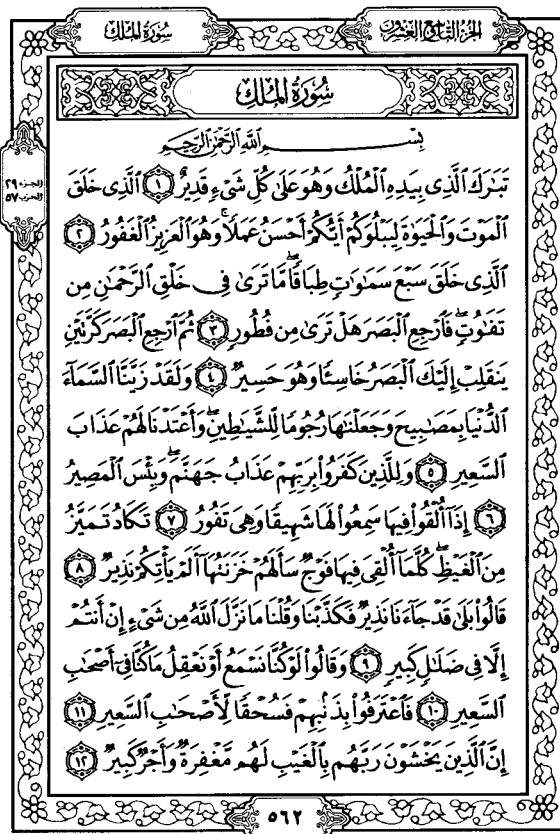 الجزء التاسع والعشرون
سُورَةُ المُلْك
سُورَةُ المُلْكِ
بِسْمِ اللَّهِ الرَّحْمَٰنِ الرَّحِيمِ
الجزء ٢٩
الحزب ٥٧
تَبَارَكَ ٱلَّذِى بِيَدِهِ ٱلْمُلْكُ وَهُوَ عَلَىٰ كُلِّ شَىْءٍ قَدِيرٌ ١ ٱلَّذِى خَلَقَ
ٱلْمَوْتَ وَٱلْحَيَوٰةَ لِيَبْلُوَكُمْ أَيُّكُمْ أَحْسَنُ عَمَلًا ۚ وَهُوَ ٱلْعَزِيزُ ٱلْغَفُورُ ٢
ٱلَّذِى خَلَقَ سَبْعَ سَمَٰوَٰتٍ طِبَاقًا ۖ مَّا تَرَىٰ فِى خَلْقِ ٱلرَّحْمَٰنِ مِن
تَفَٰوُتٍ ۖ فَٱرْجِعِ ٱلْبَصَرَ هَلْ تَرَىٰ مِن فُطُورٍ ٣ ثُمَّ ٱرْجِعِ ٱلْبَصَرَ كَرَّتَيْنِ
يَنقَلِبْ إِلَيْكَ ٱلْبَصَرُ خَاسِئًا وَهُوَ حَسِيرٌ ٤ وَلَقَدْ زَيَّنَّا ٱلسَّمَآءَ
ٱلدُّنْيَا بِمَصَٰبِيحَ وَجَعَلْنَٰهَا رُجُومًا لِّلشَّيَٰطِينِ ۖ وَأَعْتَدْنَا لَهُمْ عَذَابَ
ٱلسَّعِيرِ ٥ وَلِلَّذِينَ كَفَرُوا۟ بِرَبِّهِمْ عَذَابُ جَهَنَّمَ ۖ وَبِئْسَ ٱلْمَصِيرُ
٦ إِذَآ أُلْقُوا۟ فِيهَا سَمِعُوا۟ لَهَا شَهِيقًا وَهِىَ تَفُورُ ٧ تَكَادُ تَمَيَّزُ
مِنَ ٱلْغَيْظِ ۖ كُلَّمَآ أُلْقِىَ فِيهَا فَوْجٌ سَأَلَهُمْ خَزَنَتُهَآ أَلَمْ يَأْتِكُمْ نَذِيرٌ ٨
قَالُوا۟ بَلَىٰ قَدْ جَآءَنَا نَذِيرٌ فَكَذَّبْنَا وَقُلْنَا مَا نَزَّلَ ٱللَّهُ مِن شَىْءٍ إِنْ أَنتُمْ
إِلَّا فِى ضَلَٰلٍ كَبِيرٍ ٩ وَقَالُوا۟ لَوْ كُنَّا نَسْمَعُ أَوْ نَعْقِلُ مَا كُنَّا فِىٓ أَصْحَٰبِ
ٱلسَّعِيرِ ١٠ فَٱعْتَرَفُوا۟ بِذَنۢبِهِمْ فَسُحْقًا لِّأَصْحَٰبِ ٱلسَّعِيرِ ١١
إِنَّ ٱلَّذِينَ يَخْشَوْنَ رَبَّهُم بِٱلْغَيْبِ لَهُم مَّغْفِرَةٌ وَأَجْرٌ كَبِيرٌ ١٢
٥٦٢